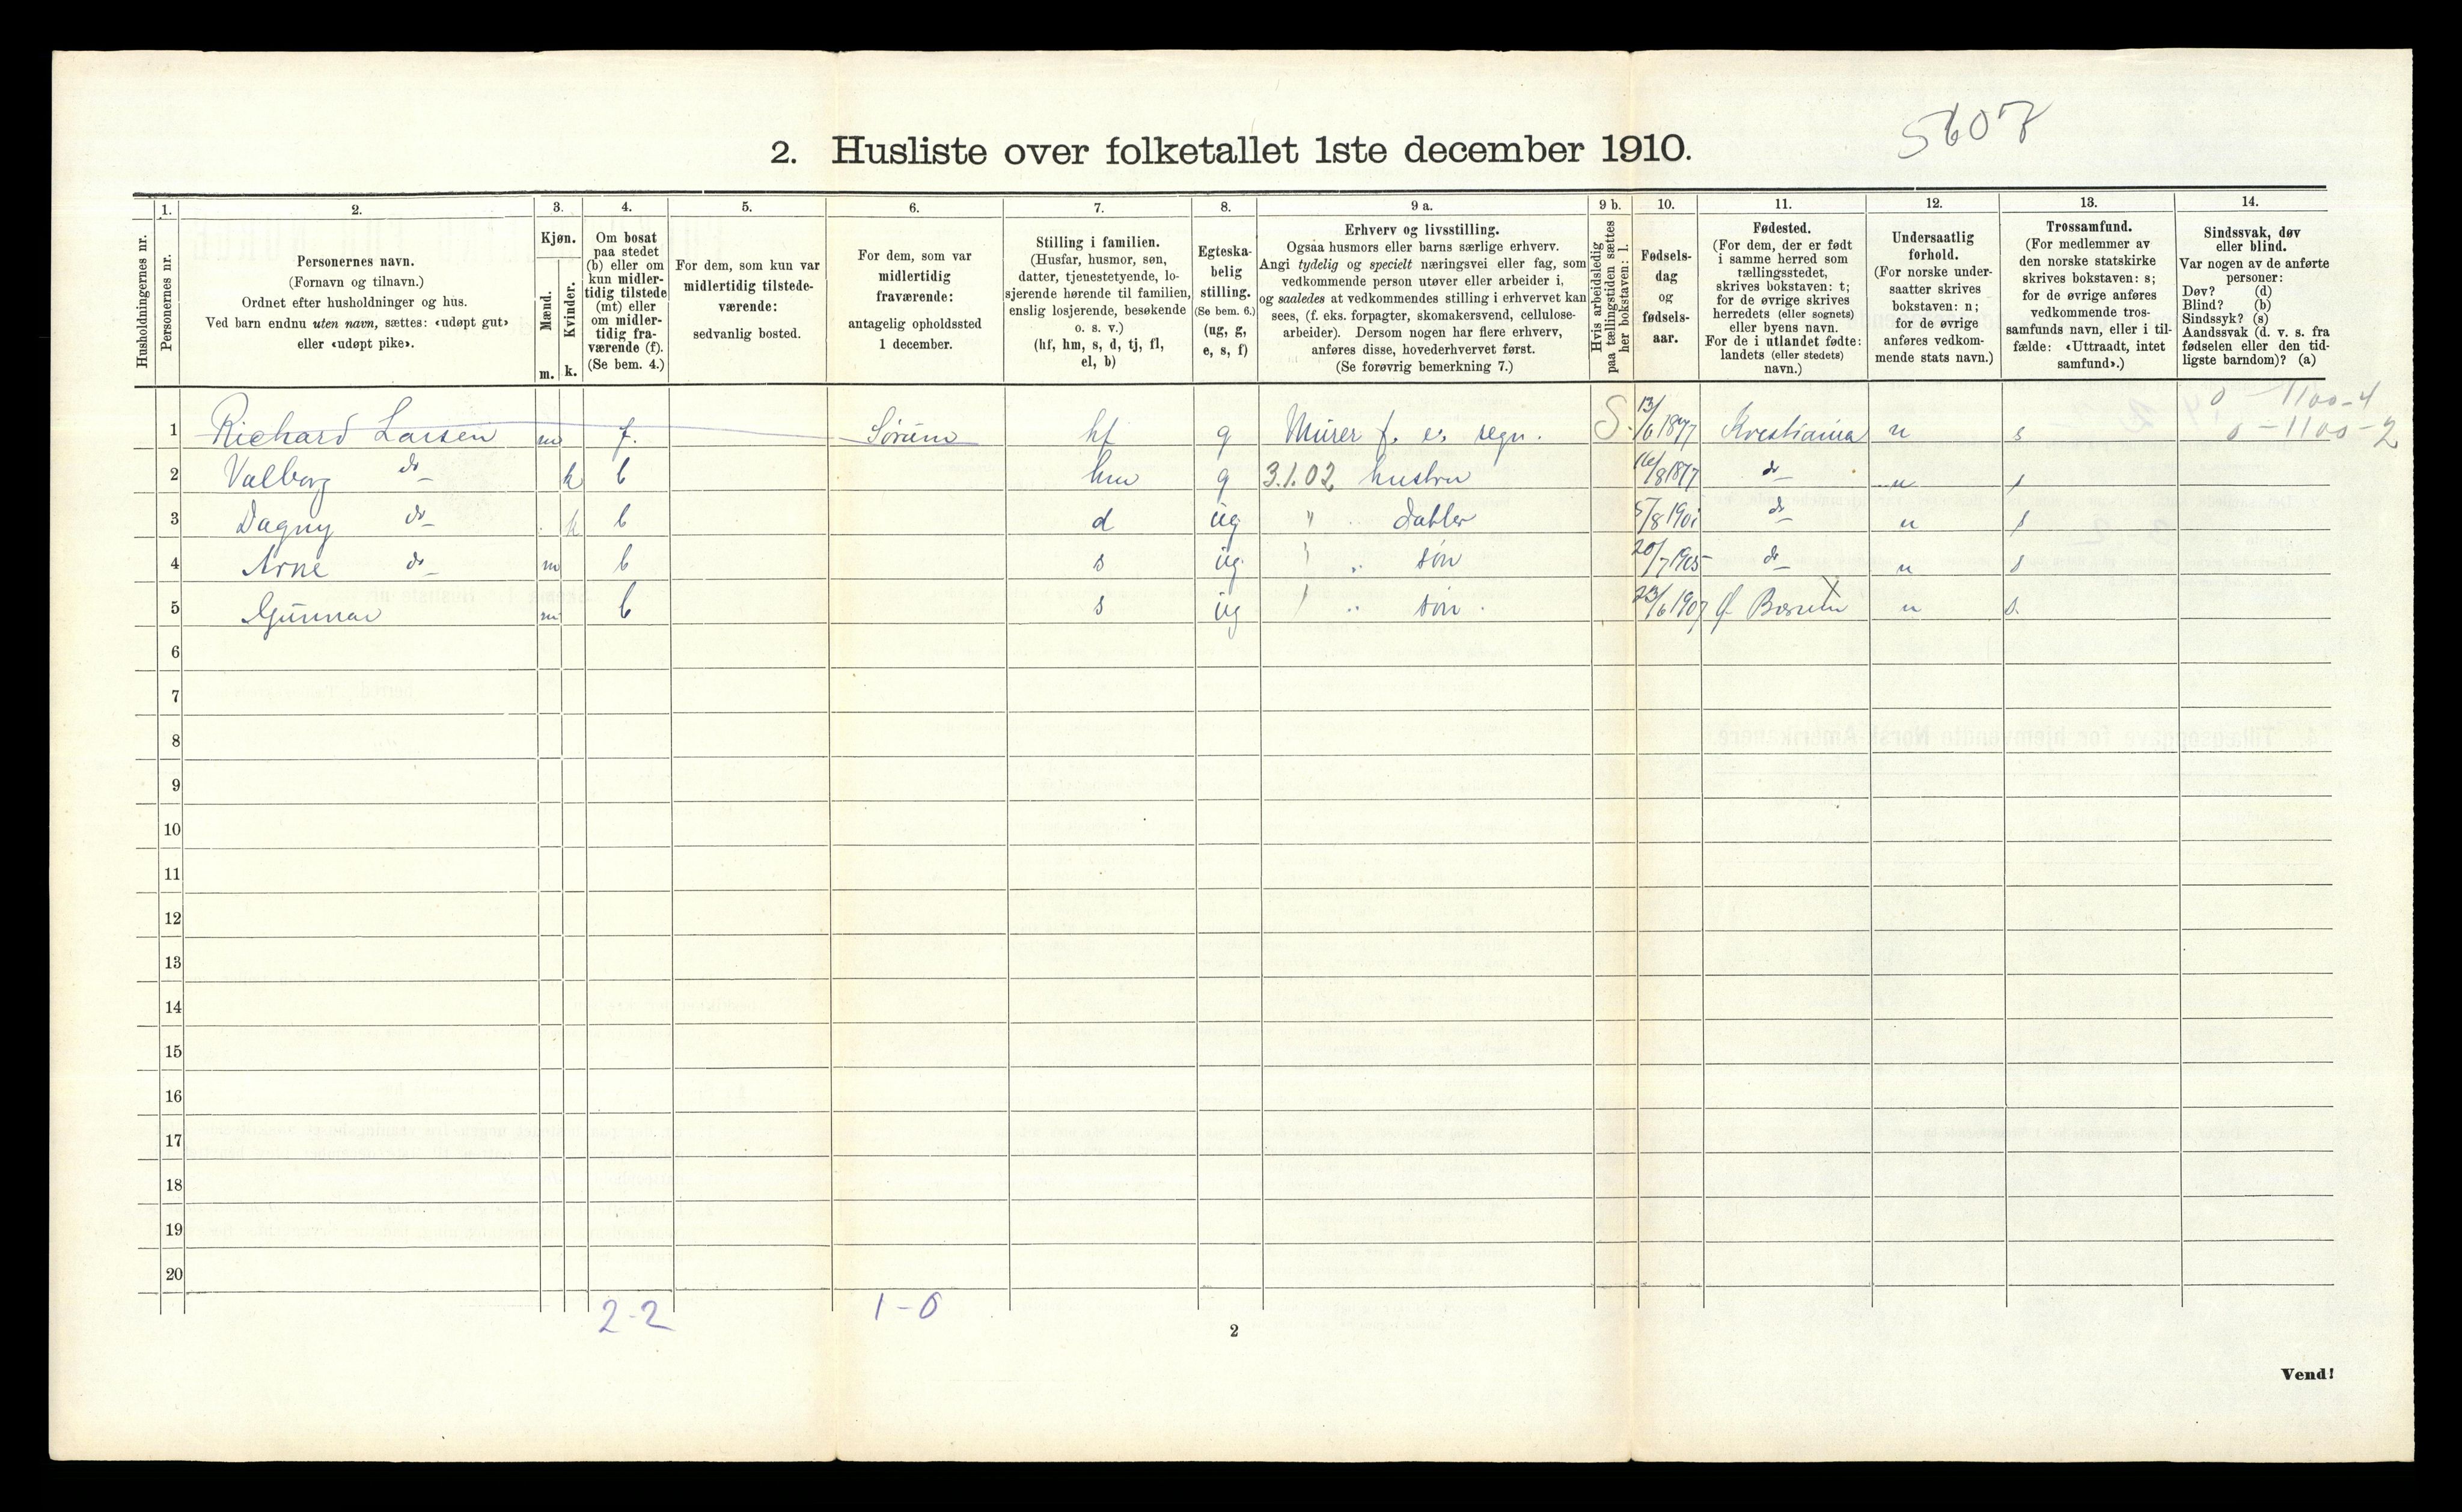 5607
2. Husliste over folketallet 1ste december 1910.
Husholdningernes nr.
1. Personernes nr.
2. Personernes navn.
(Fornavn og tilnavn.)
Ordnet efter husholdninger og hus.
Ved barn endnu uten navn, sættes: «udøpt gut»
eller «udøpt pike».
3. Kjøn.
Mænd. m.
Kvinder. k.
4. Om bosat
paa stedet
(b) eller om
kun midler-
tidig tilstede
(mt) eller
om midler-
tidig fra-
værende (f).
(Se bem. 4.)
5. For dem, som kun var
midlertidig tilstede-
værende:
sedvanlig bosted.
6. For dem, som var
midlertidig
fraværende:
antagelig opholdssted
1 december.
7. Stilling i familien.
(Husfar, husmor, søn,
datter, tjenestetyende, lo-
sjerende hørende til familien,
enslig losjerende, besøkende
o. s. v.)
(hf, hm, s, d, tj, fl,
el, b)
8. Egteska-
belig
stilling.
(Se bem. 6.)
(ug, g,
e, s, f)
9 a. Erhverv og livsstilling.
Ogsaa husmors eller barns særlige erhverv.
Angi tydelig og specielt næringsvei eller fag, som
vedkommende person utøver eller arbeider i,
og saaledes at vedkommendes stilling i erhvervet kan
sees, (f. eks. forpagter, skomakersvend, cellulose-
arbeider). Dersom nogen har flere erhverv,
anføres disse, hovederhvervet først.
(Se forøvrig bemerkning 7.)
9 b. Hvis arbeidsledig
paa tællingstiden sættes
her bokstaven: l.
10. Fødsels-
dag
og
fødsels-
aar.
11. Fødested.
(For dem, der er født
i samme herred som
tællingsstedet,
skrives bokstaven: t;
for de øvrige skrives
herredets (eller sognets)
eller byens navn.
For de i utlandet fødte:
landets (eller stedets)
navn.)
12. Undersaatlig
forhold.
(For norske under-
saatter skrives
bokstaven: n;
for de øvrige
anføres vedkom-
mende stats navn.)
13. Trossamfund.
(For medlemmer av
den norske statskirke
skrives bokstaven: s;
for de øvrige anføres
vedkommende tros-
samfunds navn, eller i til-
fælde: «Uttraadt, intet
samfund».)
14. Sindssvak, døv
eller blind.
Var nogen av de anførte
personer:
Døv? (d)
Blind? (b)
Sindssyk? (s)
Aandssvak (d. v. s. fra
fødselen eller den tid-
ligste barndom)? (a)
0 - 1100-4
0 - 1100-2
1 Richard Larsen m f. Sørum hf g Murer f. eg. regn. S. 13/6 1877 Krestiania n s
2 Valborg do k b hm g 3.1.02 hustru 16/8 1877 do n s
3 Dagny do k b d ug " datter 5/8 1901 do n s
4 Arne do m b s ug " søn 20/7 1905 do n s
5 Gunnar m b s ug " søn 23/6 1907 Ø Bærum n s.
6
7
8
9
10
11
12
13
14
15
16
17
18
19
20
2-2 1-0
2
Vend!